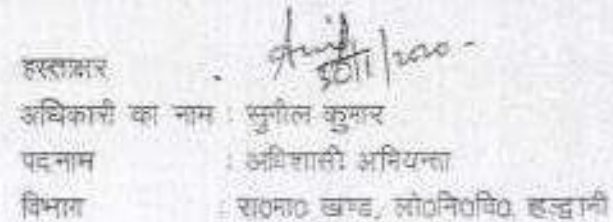 हस्ताक्षर
अधिकारी का नाम : सुनील कुमार
पदनाम : अधिशासी अभियन्ता
विभाग : रा०मा० खण्ड, लो०नि०वि० हल्द्वानी